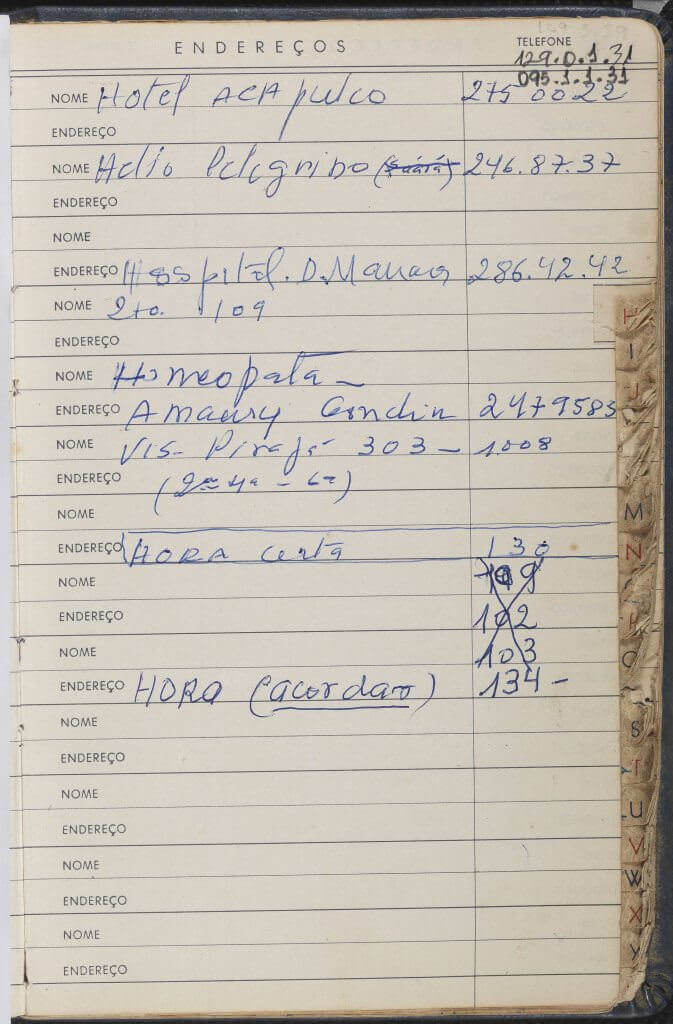 ENDEREÇOS
TELEFONE
129.0.1.31
095.1.1.31
NOME Hotel ACApulco 275 00 22
ENDEREÇO
NOME Helio Pelegrino 246.87.37
ENDEREÇO
NOME
ENDEREÇO Hospital. D. 286.42.42
NOME 2to. 109
ENDEREÇO
NOME Homeopata
ENDEREÇO Amaury 2479583
NOME Vis. Pirajá 303 - 1008
ENDEREÇO (2ª 4ª - 6ª)
NOME
ENDEREÇO HORA certa 130
NOME
ENDEREÇO 102
NOME 103
ENDEREÇO HORA (acordar) 134 -
NOME
ENDEREÇO
NOME
ENDEREÇO
NOME
ENDEREÇO
NOME
ENDEREÇO
H
I
J
M
N
P
S
T
U
V
W
X
Y